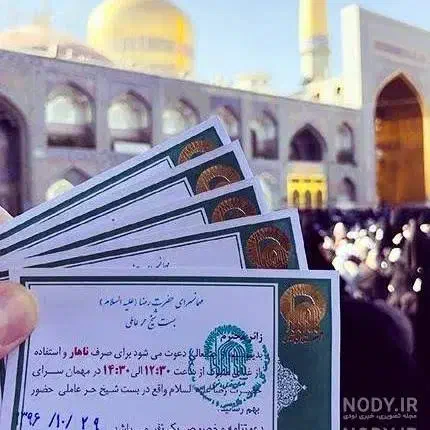 مهمانسرای حضرت رضا (علیه السلام)
بست شیخ حر عاملی
زائر محترم
دعوت می شود برای صرف ناهار و استفاده
از ساعت ۱۲:۳۰ الی ۱۴:۳۰ در مهمان سرای
السلام واقع در بست شیخ حر عاملی حضور
بهم رسانید.
۱۳۹۶/۱۰/۲۹
NODY.IR
مجله تصویری، خبری نودی
NODY.IR